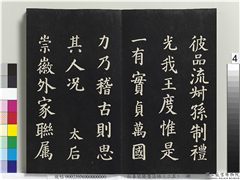 彼品流叔孫制禮
光我王度惟是
一有實貞萬國
力乃稽古則思
其人况 太后
崇徽外家聯属
4